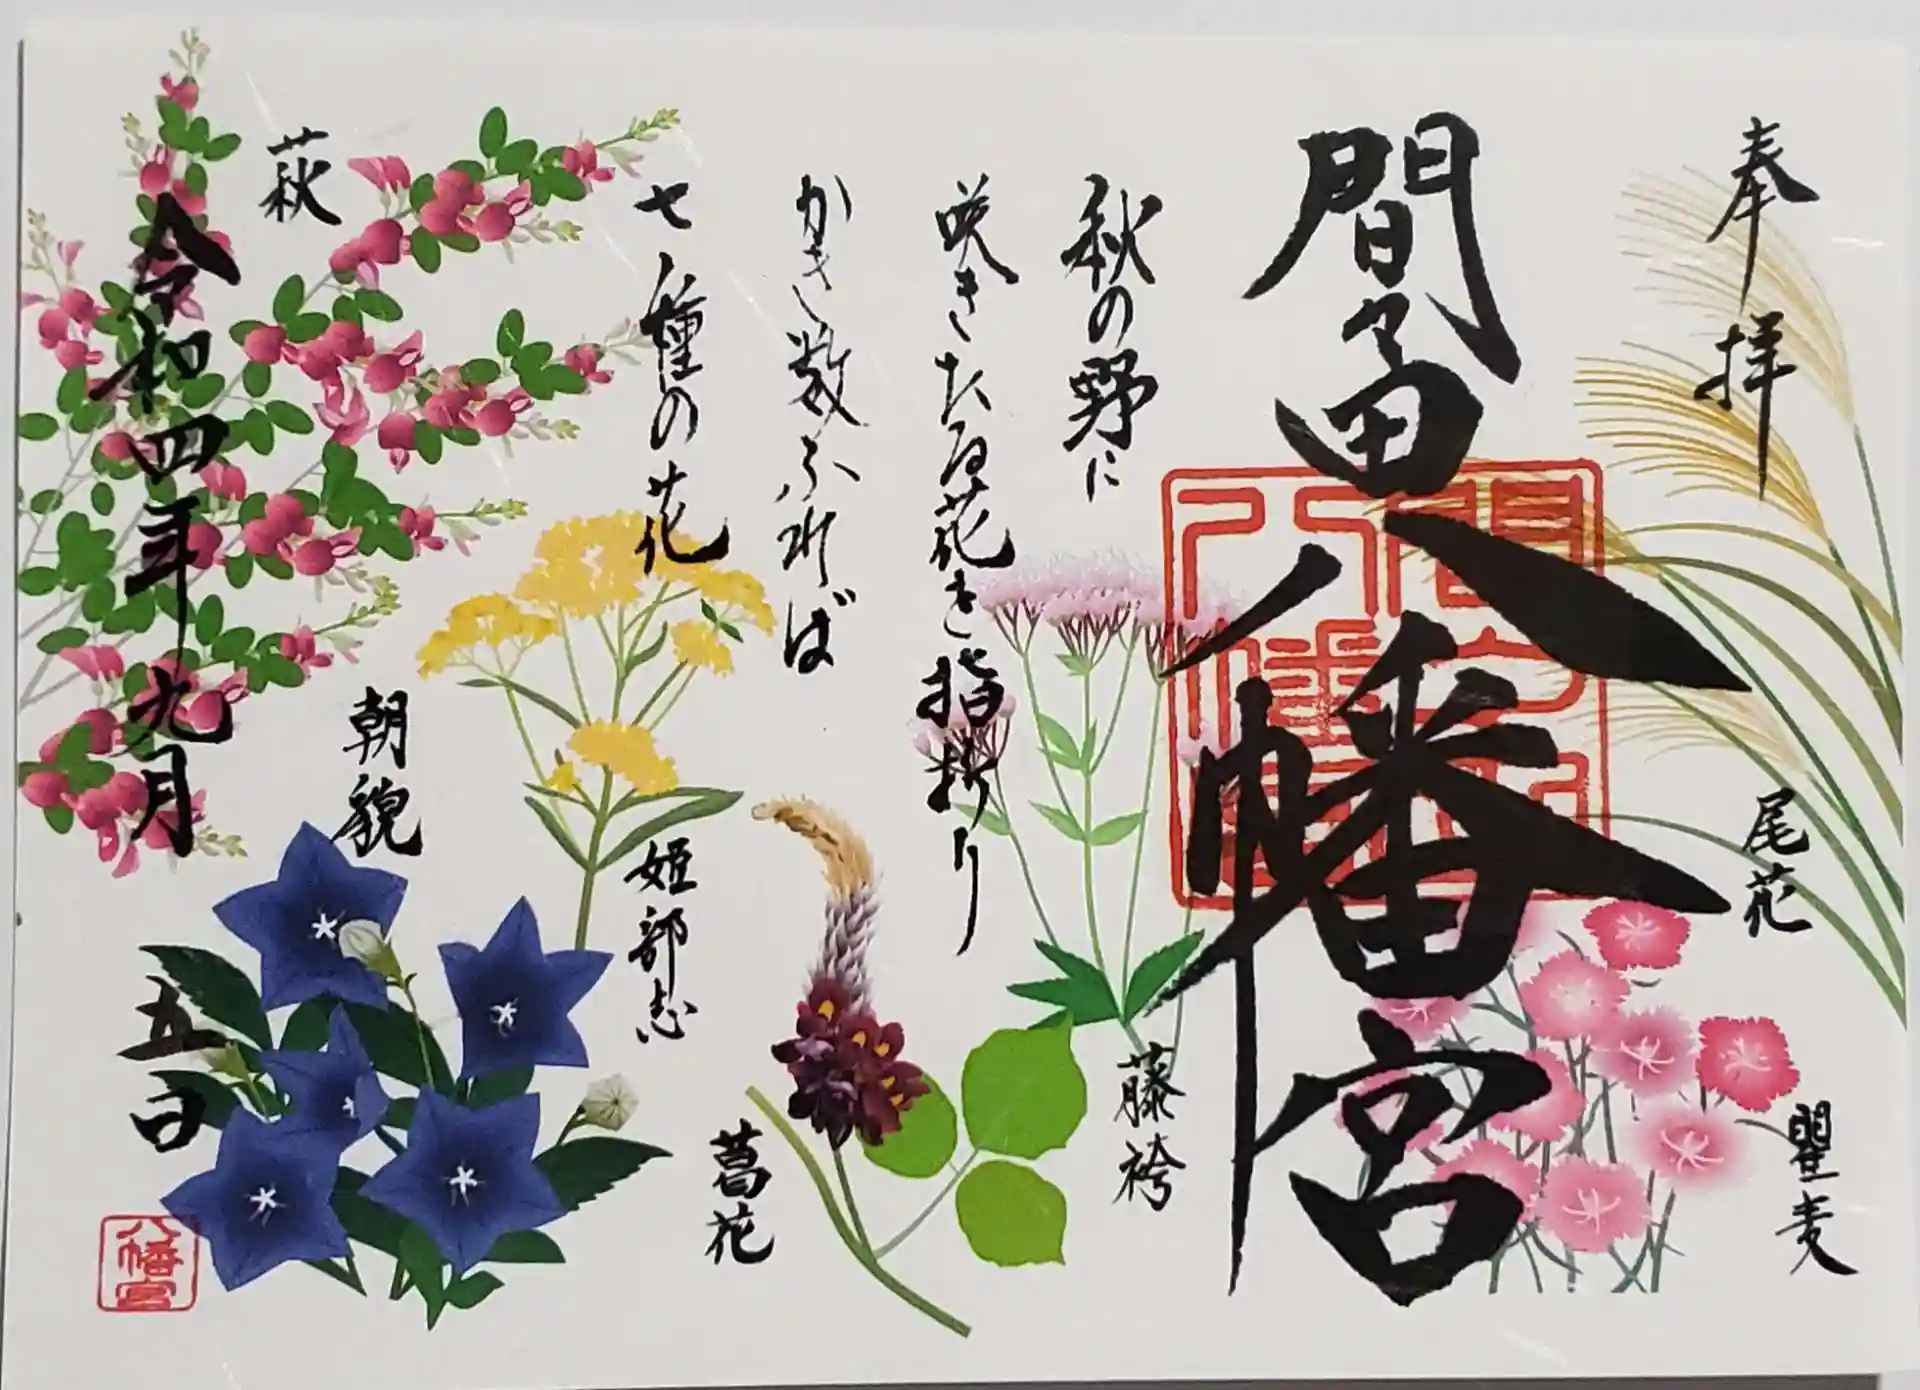 奉拝
尾花
瞿麦
間々田八幡宮
秋の野に
藤袴
咲きたる花を指折り
かき数ふれば
葛花
七種の花
姫部志
朝貌
萩
令和四年九月五日
八幡宮